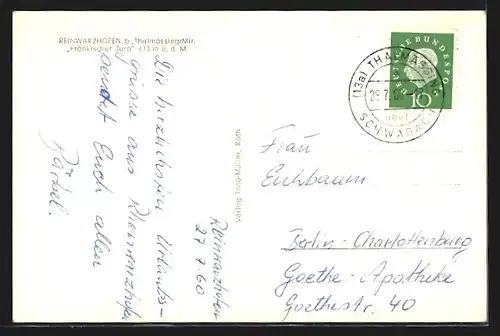 REINWARZHOFEN b. Thalmässing/Mfr.
„Fränkischer Jura" 613 m ü. d. M.
Die herzlichsten Urlaubs-
grüsse aus Rheinwarzhofen
sendet Euch allen
Reinwarzhofen
27.7.60
Verlag Foto-Müller, Roth
DEUTSCHE BUNDESPOST
10
(13a) THALMÄSSING
über
SCHWABACH
Frau
Eichbaum
Berlin-Charlottenburg
Goethe-Apotheke
Goethestr. 40